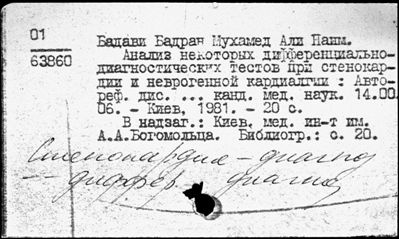 01
63860
Бадави Бадран Мухамед Али Наим.
Анализ некоторых дифференциально-
диагностических тестов при стенокар-
дии и неврогенной кардиалгии : Авто-
реф. дис. ... канд. мед. наук. 14.00.
06. - Киев, 1981. - 20 с.
В надзаг.: Киев. мед. ин-т им.
А.А.Богомольца. Библиогр.: с. 20.
Стенокардия - диагноз
— диффер. диагноз